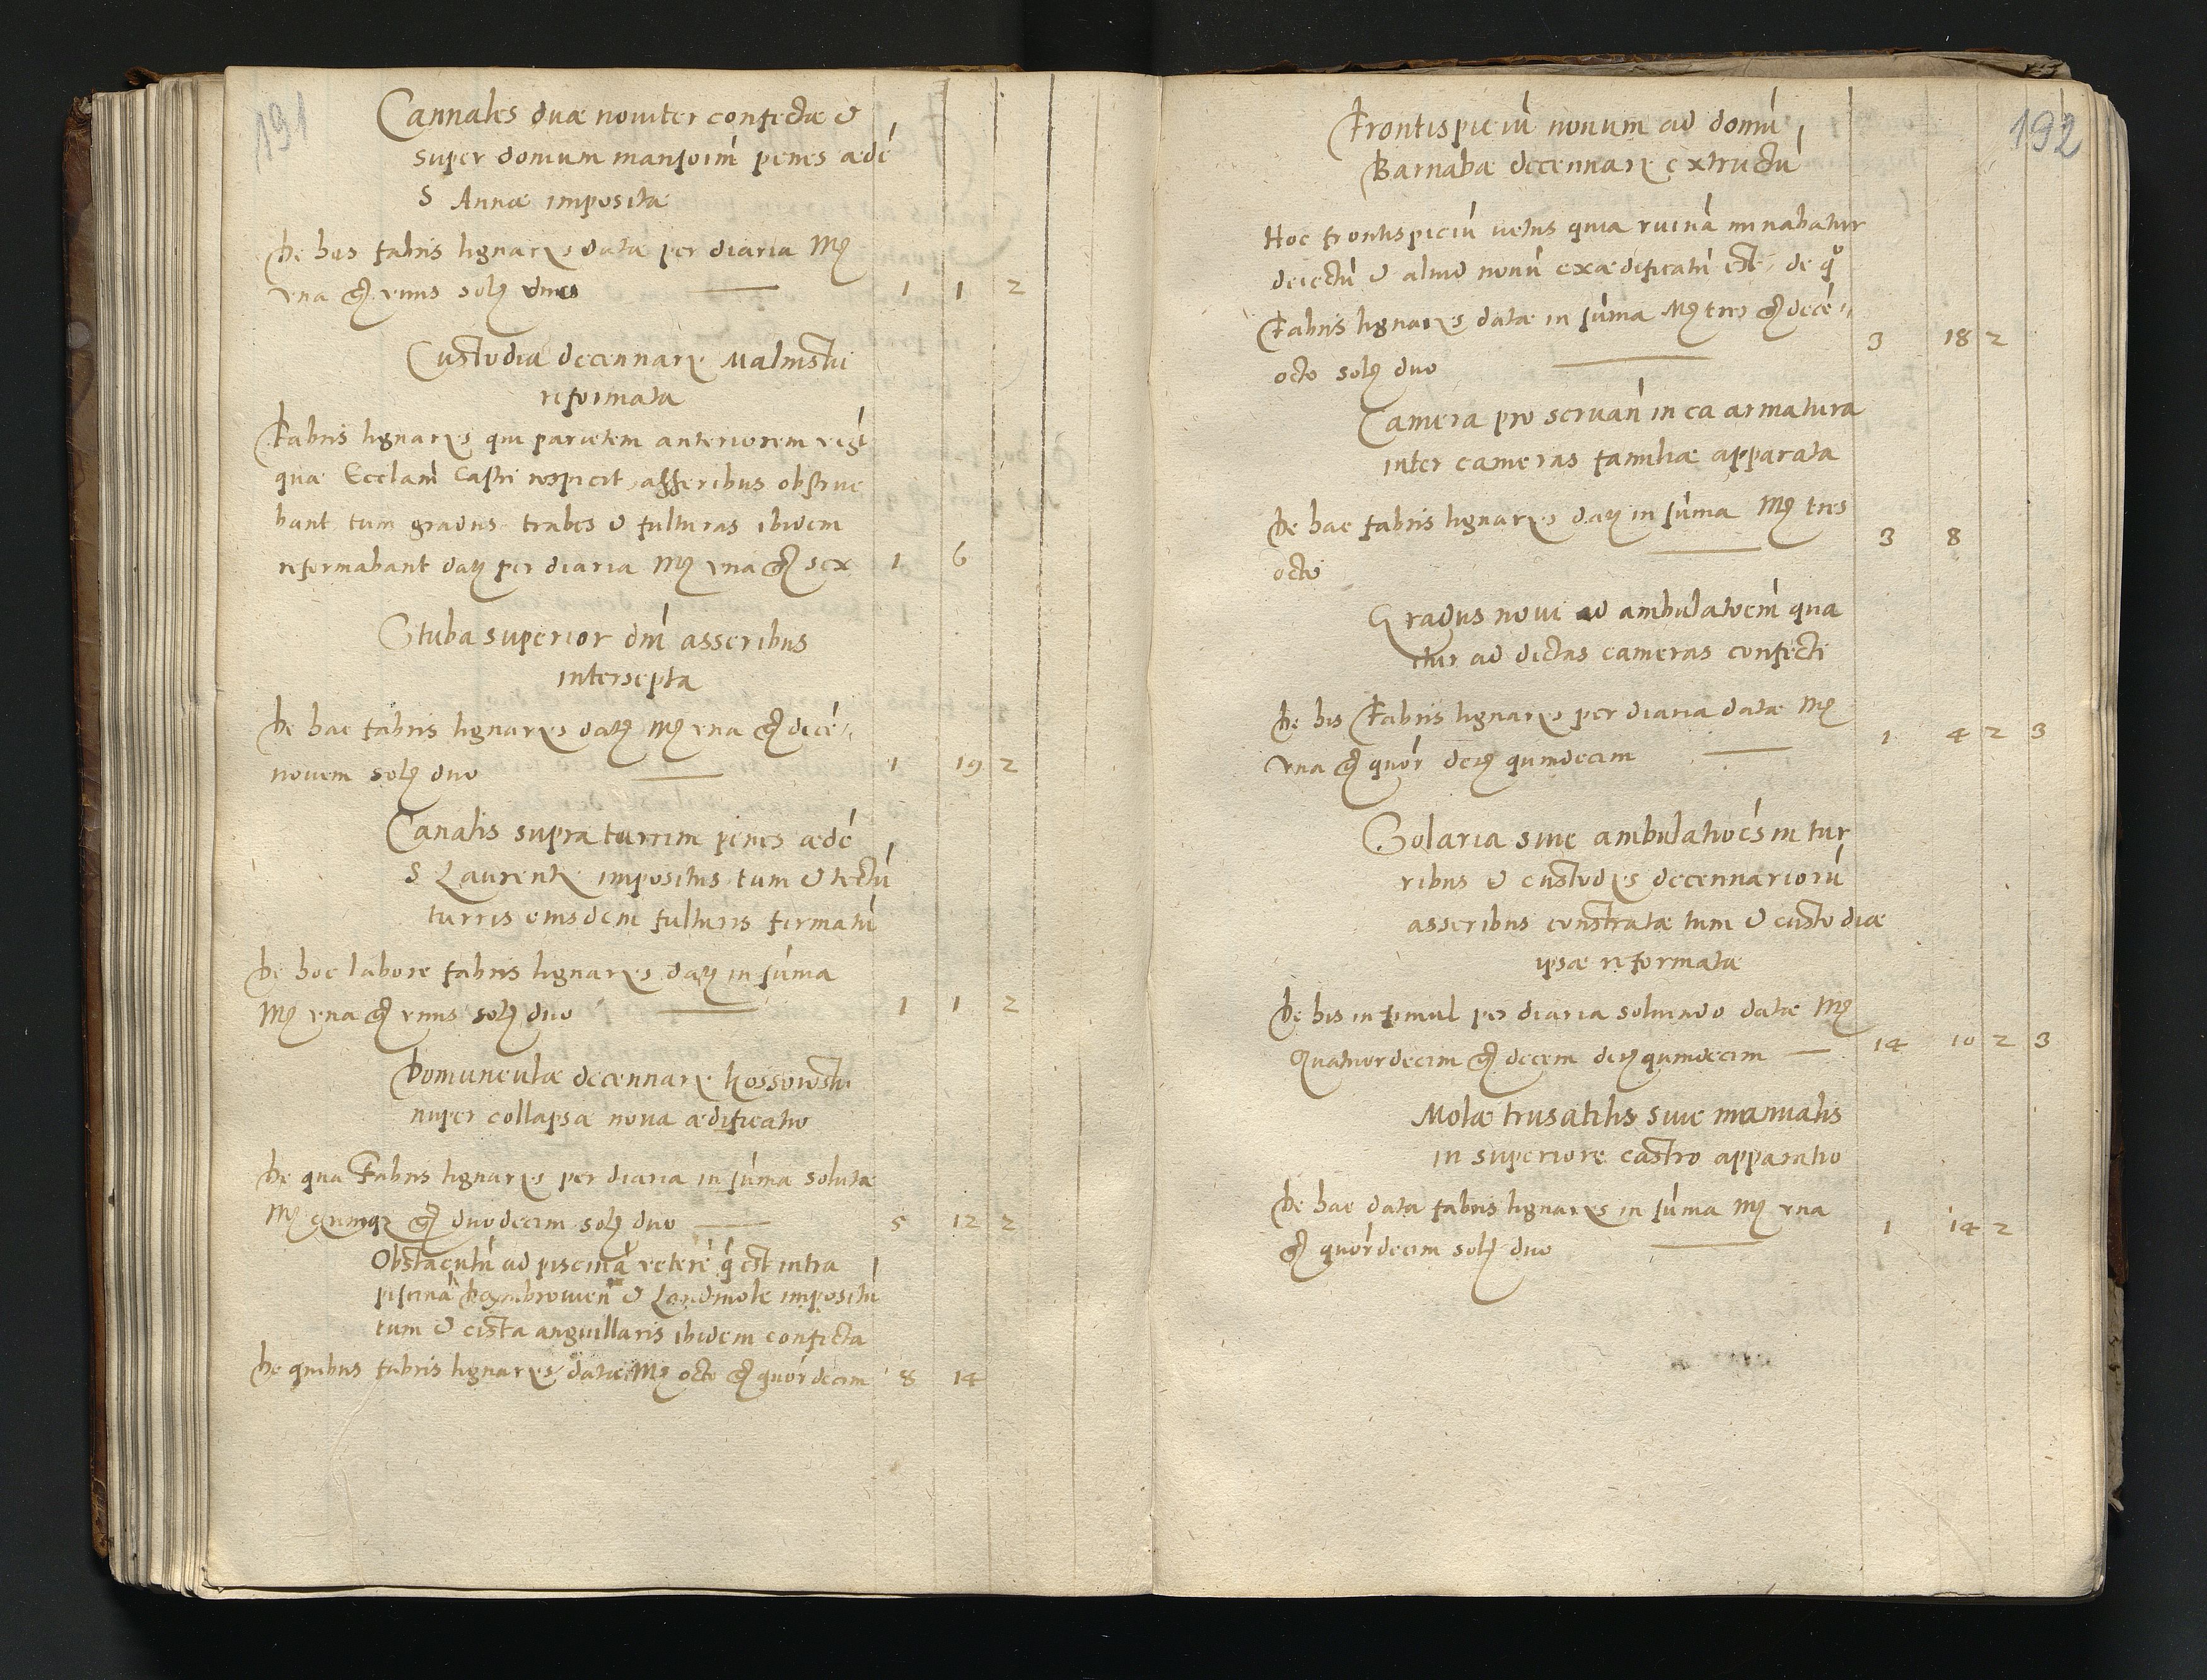 191
Cannales duæ noviter confectæ &
super domum mansioīm penes ædē
S Annæ impositæ
De his fabris lignarijs datæ per diaria Mr̄
vna gr̄ vnus solꝫ duos — 1 1 2
Custodia decennarij Malinstii
reformata
Fabris lignarijs qui parietem anteriorem
quæ Ecclam̄ Castri respicit, asseribus obstrue
bant, tum gradus trabes & fulturas ibidem
reformabant datꝫ per diaria Mr̄ vna gr̄ sex 1 6
Stuba superior dnī asseribus
intersepta
De hac fabris lignarijs datꝫ Mr̄ vna gr̄ decē„
novem solꝫ duo — 1 19 2
Canalis supra turrim penes ædē
S Laurentij impositus tum & tectū
turris eiusdem fulturis firmatū
De hoc labore fabris lignarijs datꝫ in sum̄a
Mr̄ vna gr̄ vnus solꝫ duo — 1 1 2
Domunculæ decennarij Kossowstii
nuper collapsæ nova ædificatio
De qua Fabris lignarijs per diaria in sum̄a solutæ
Mr̄ quinqꝫ gr̄ duodecim solꝫ duo — 5 12 2
Obstaculū ad piscinā veterē q̄ est intra
piscinā & Landmole impositū
tum & cista anguillaris ibidem confecta
De quibus fabris lignarijs datæ Mr̄ octo gr̄ quōrdecim 8 14
192
Frontispiciū novum ad domū
Barnabæ decennarij extructū
Hoc frontispiciū vetus quia ruinā minabatur
deiectū & aliud novū exædificatū est, de qo
Fabris lignarijs datæ in sum̄a Mr̄ tres gr̄ decē„
octo solꝫ duo — 3 18 2
Camera pro servan̄ in ea armatura
inter cameras familiæ apparata
De hac fabris lignarijs datꝫ in sum̄a Mr̄ tres
octo — 3 8
Gradus novi ad ambulatoem̄ qua
itur ad dictas cameras confecti
De his Fabris lignarijs per diaria datæ Mr̄
vna gr̄ quōr deꝫ quindecim — 1 4 2 3
Solaria sive ambulatioēs in tur
ribus & custodijs decennariorū
asseribus constratæ tum & custodiæ
ipsæ reformatæ
De his insimul per diaria solvendo datæ Mr̄
Quatuordecim gr̄ decem deꝫ quindecim — 14 10 2 3
Molæ trusatilis sive manualis
in superiore castro apparatio
De hac data fabris lignarijs in sum̄a Mr̄ vna
gr̄ quōrdecim solꝫ duo — 1 14 2